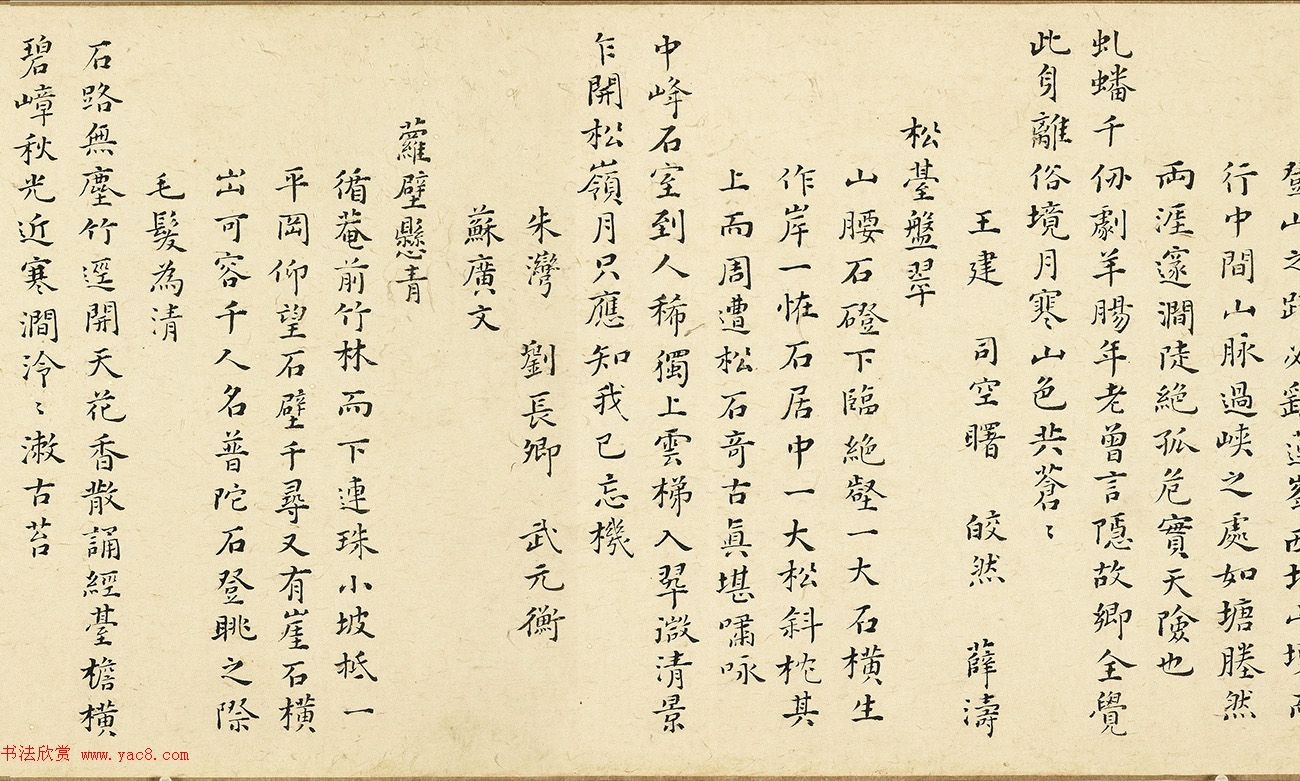 登山之路必劉蓮峯西坡小境而
行中間山脉過峽之處如塘塍然
両涯邃澗陡絕孤危實天險也
虬蟠千仞劇羊腸年老曾言隱故鄉全覺
此身離俗境月寒山色共蒼〻
王建 司空曙 皎然 薛濤
松臺盤翠
山腰石磴下臨絶壑一大石橫生
作岸一怪石居中一大松斜枕其
上而周遭松石奇古真堪嘯咏
中峰石室到人稀獨上雲梯入翠微清景
乍開松嶺月只應知我已忘機
朱灣 劉長卿 武元衡
蘇廣文
蘿壁懸青
循菴前竹林而下連珠小坡抵一
平岡仰望石壁千尋又有崖石橫
出可容千人名普陀石登眺之際
毛髮為清
石路無塵竹逕開天花香散誦經臺檐橫
碧嶂秋光近寒澗泠〻漱古苔
书法欣赏 www.yac8.com